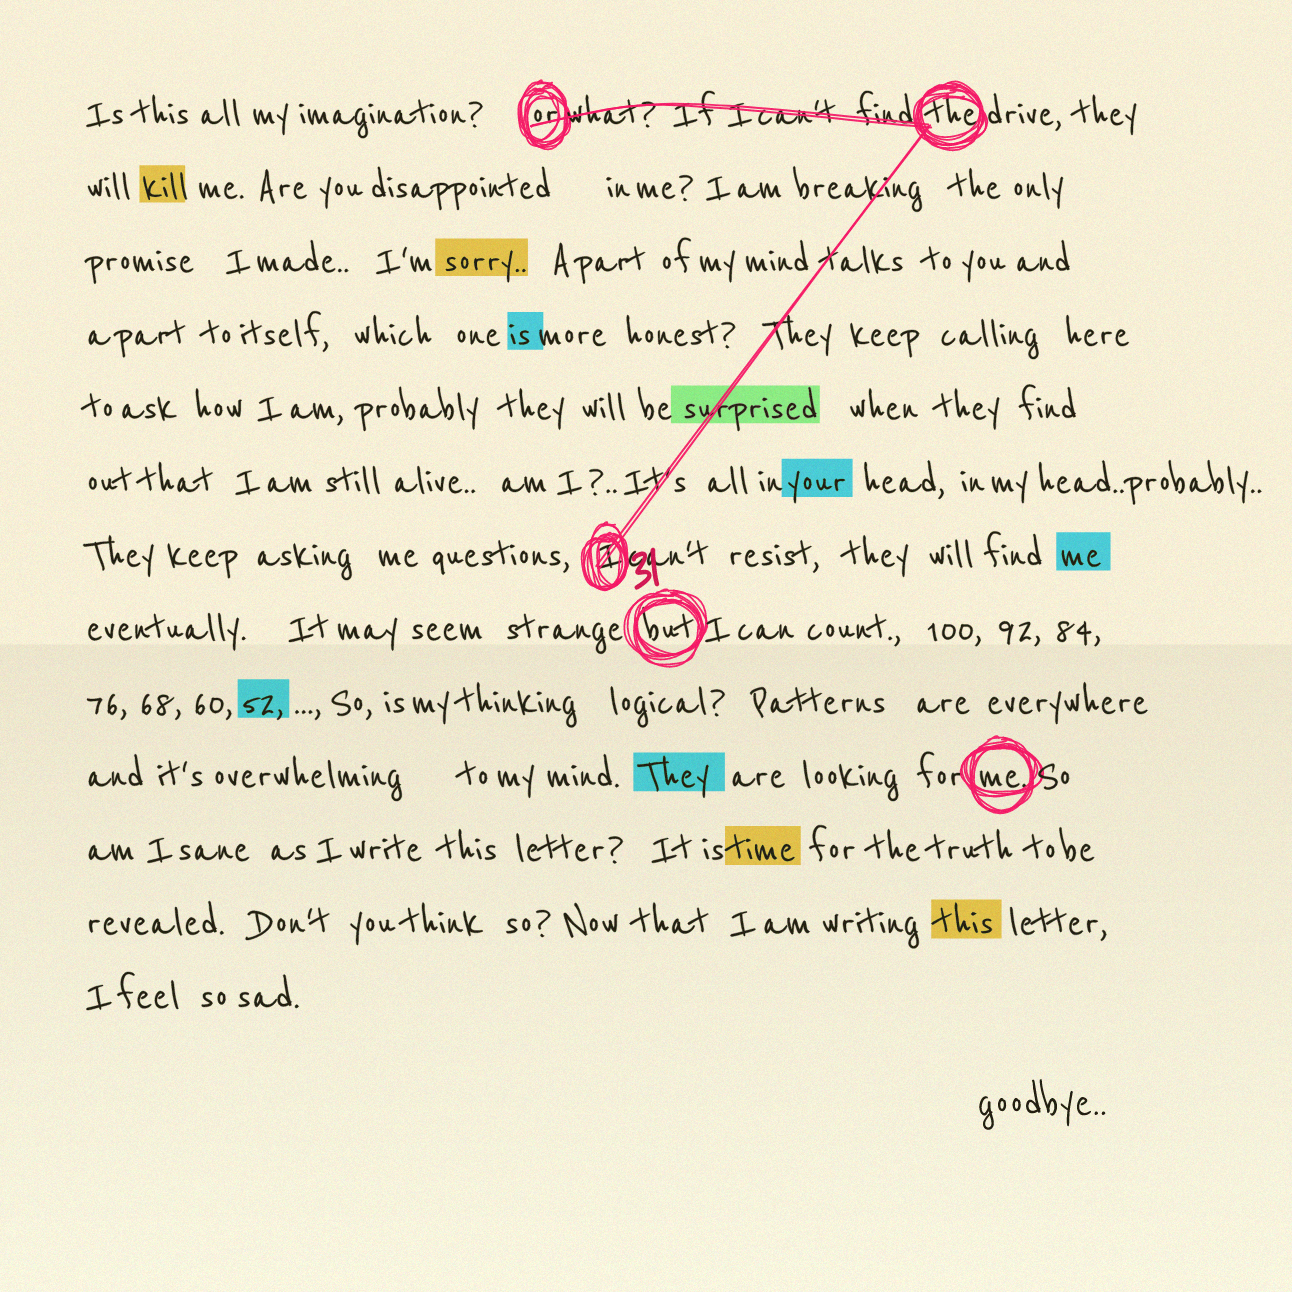 Is this all my imagination? or what? If I can't find the drive, they
will kill me. Are you disappointed in me? I am breaking the only
promise I made.. I'm sorry.. A part of my mind talks to you and
a part to itself, which one is more honest? They keep calling here
to ask how I am, probably they will be surprised when they find
out that I am still alive.. am I?.. It's all in your head, in my head..probably..
They keep asking me questions, I can't resist, they will find me
31
eventually. It may seem strange but I can count., 100, 92, 84,
76, 68, 60, 52, ..., So, is my thinking logical? Patterns are everywhere
and it's overwhelming to my mind. They are looking for me. So
am I sane as I write this letter? It is time for the truth to be
revealed. Don't you think so? Now that I am writing this letter,
I feel so sad.
goodbye..